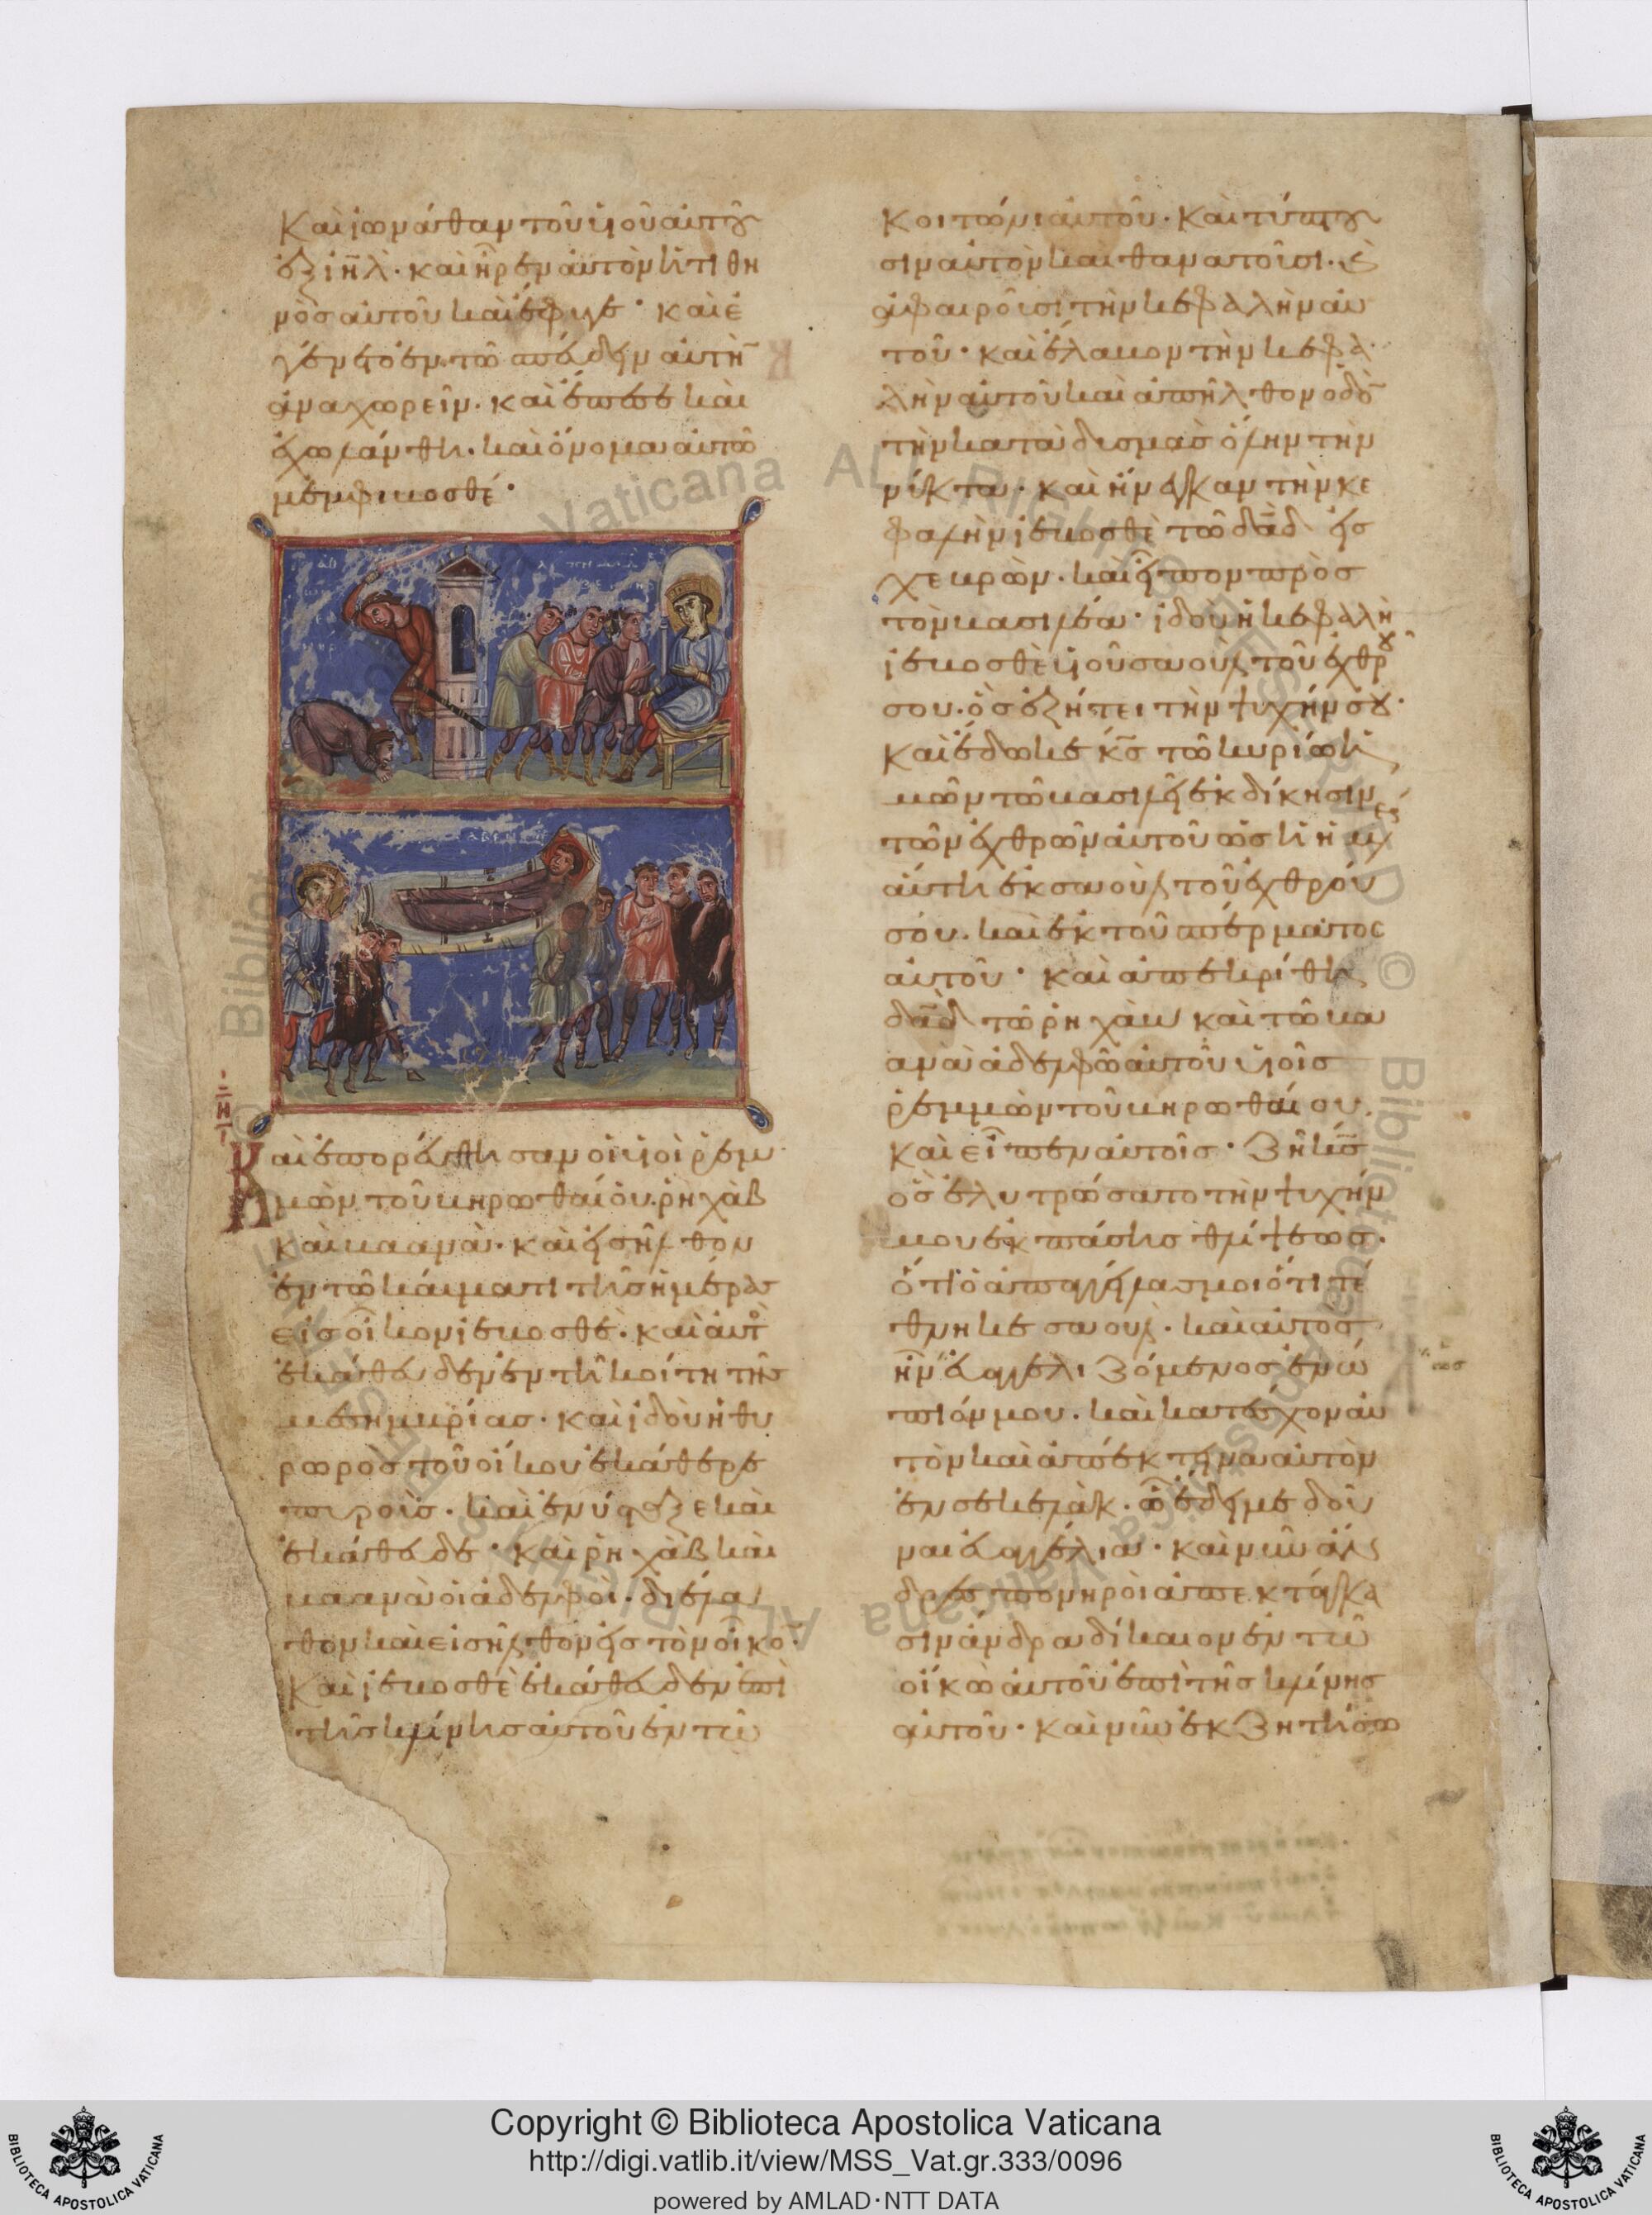 Καὶ ἰωνάθαν τοῦ υἱοῦ αὐτοῦ
ἐξ ἰη̅λ· καὶ ἦρεν αὐτὸν ἡ τιθη
νὸς αὐτοῦ καὶ ἔφυγε· καὶ ἐ
γένετο ἐν τῶ σπεύδειν αὐτὴ̅
ἀναχωρεῖν· καὶ ἔπεσε καὶ
ἐχωλάνθη· καὶ ὄνομα αὐτῶ
μεμφιβοσθέ·
Καὶ ἐπορεύθησαν οἱ υἱοὶ ρεμ
μὼν τοῦ βηρωθαίου· ρηχὰβ
καὶ βαανὰ· καὶ εἰσῆλθον
ἐν τῶ καύματι τῆς ἡμέρας
εἰς οἶκον ἰεβοσθέ· καὶ αὐτὸς
ἐκάθευδεν ἐν τῆ κοίτη τῆς
μεσημβρίας· καὶ ἰδοὺ ἡ θυ
ρωρὸς τοῦ οἴκου ἐκάθαιρε
πυροὺς· καὶ ἐνύσταξε καὶ
ἐκάθευδε· καὶ ρηχὰβ καὶ
βαανὰ οἱ ἀδελφοὶ· διέλα
θον καὶ εἰσῆλθον εἰς τὸν οἶκο̅·
καὶ ἰεβοσθὲ ἐκάθευδεν ἐπὶ
τῆς κλίνης αὐτοῦ ἐν τῶ
κοιτῶνι αὐτοῦ· καὶ τύπτου
σιν αὐτὸν καὶ θανατοῦσι· καὶ
ἀφαιροῦσι τὴν κεφαλὴν αὐ
τοῦ· καὶ ἔλαβον τὴν κεφα
λὴν αὐτοῦ καὶ ἀπῆλθον ὁδὸ̅
τὴν κατὰ δυσμὰς ὅλην τὴν
νύκτα· καὶ ἤνεγκαν τὴν κε
φαλὴν ἰεβοσθὲ τῶ δα̅δ εἰς
χεβρὼν· καὶ εἶπον πρὸς
τὸν βασιλέα· ἰδοὺ ἡ κεφαλὴ
ἰεβοσθὲ υἱοῦ σαοὺλ τοῦ ἐχθροῦ
σου· ὃς ἐζήτει τὴν ψυχήν σου·
καὶ ἔδωκε κ̅ς τῶ κυρίω ἡ
μῶν τῶ βασιλεῖ ἐκδίκησιν
τῶν ἐχθρῶν αὐτοῦ ὡς ἡ ἡμέρα
αὕτη ἐκ σαοὺλ τοῦ ἐχθροῦ
σου· καὶ ἐκ τοῦ σπέρματος
αὐτοῦ· καὶ ἀπεκρίθη
δα̅δ τῶ ρηχὰβ καὶ τῶ βα
ανὰ ἀδελφῶ αὐτοῦ υἱοῖς
ρεμμὼν τοῦ βηρωθαίου·
καὶ εἶπεν αὐτοῖς· ζῆ κ̅ς
ὃς ἐλυτρώσατο τὴν ψυχήν
μου ἐκ πάσης θλίψεως·
ὅτι ὁ ἀπαγγείλας μοι ὅτι τέ
θνηκε σαούλ· καὶ αὐτὸς
ἦν εὐαγγελιζόμενος ἐνώ
πιόν μου· καὶ κατέσχον αὐ
τὸν καὶ ἀπέκτεινα αὐτὸν
ἐν σεκελὰκ· ὧ ἔδει με δοῦ
ναι εὐαγγέλια· καὶ νῦν ἄν
δρες πονηροὶ ἀπεκτάγκα
σιν ἄνδρα δίκαιον ἐν τῶ
οἴκω αὐτοῦ ἐπὶ τῆς κλίνης
αὐτοῦ· καὶ νῦν ἐκζητήσω
Copyright © Biblioteca Apostolica Vaticana
http://digi.vatlib.it/view/MSS_Vat.gr.333/0096
powered by AMLAD·NTT DATA
BIBLIOTECA APOSTOLICA VATICANA
BIBLIOTECA APOSTOLICA VATICANA